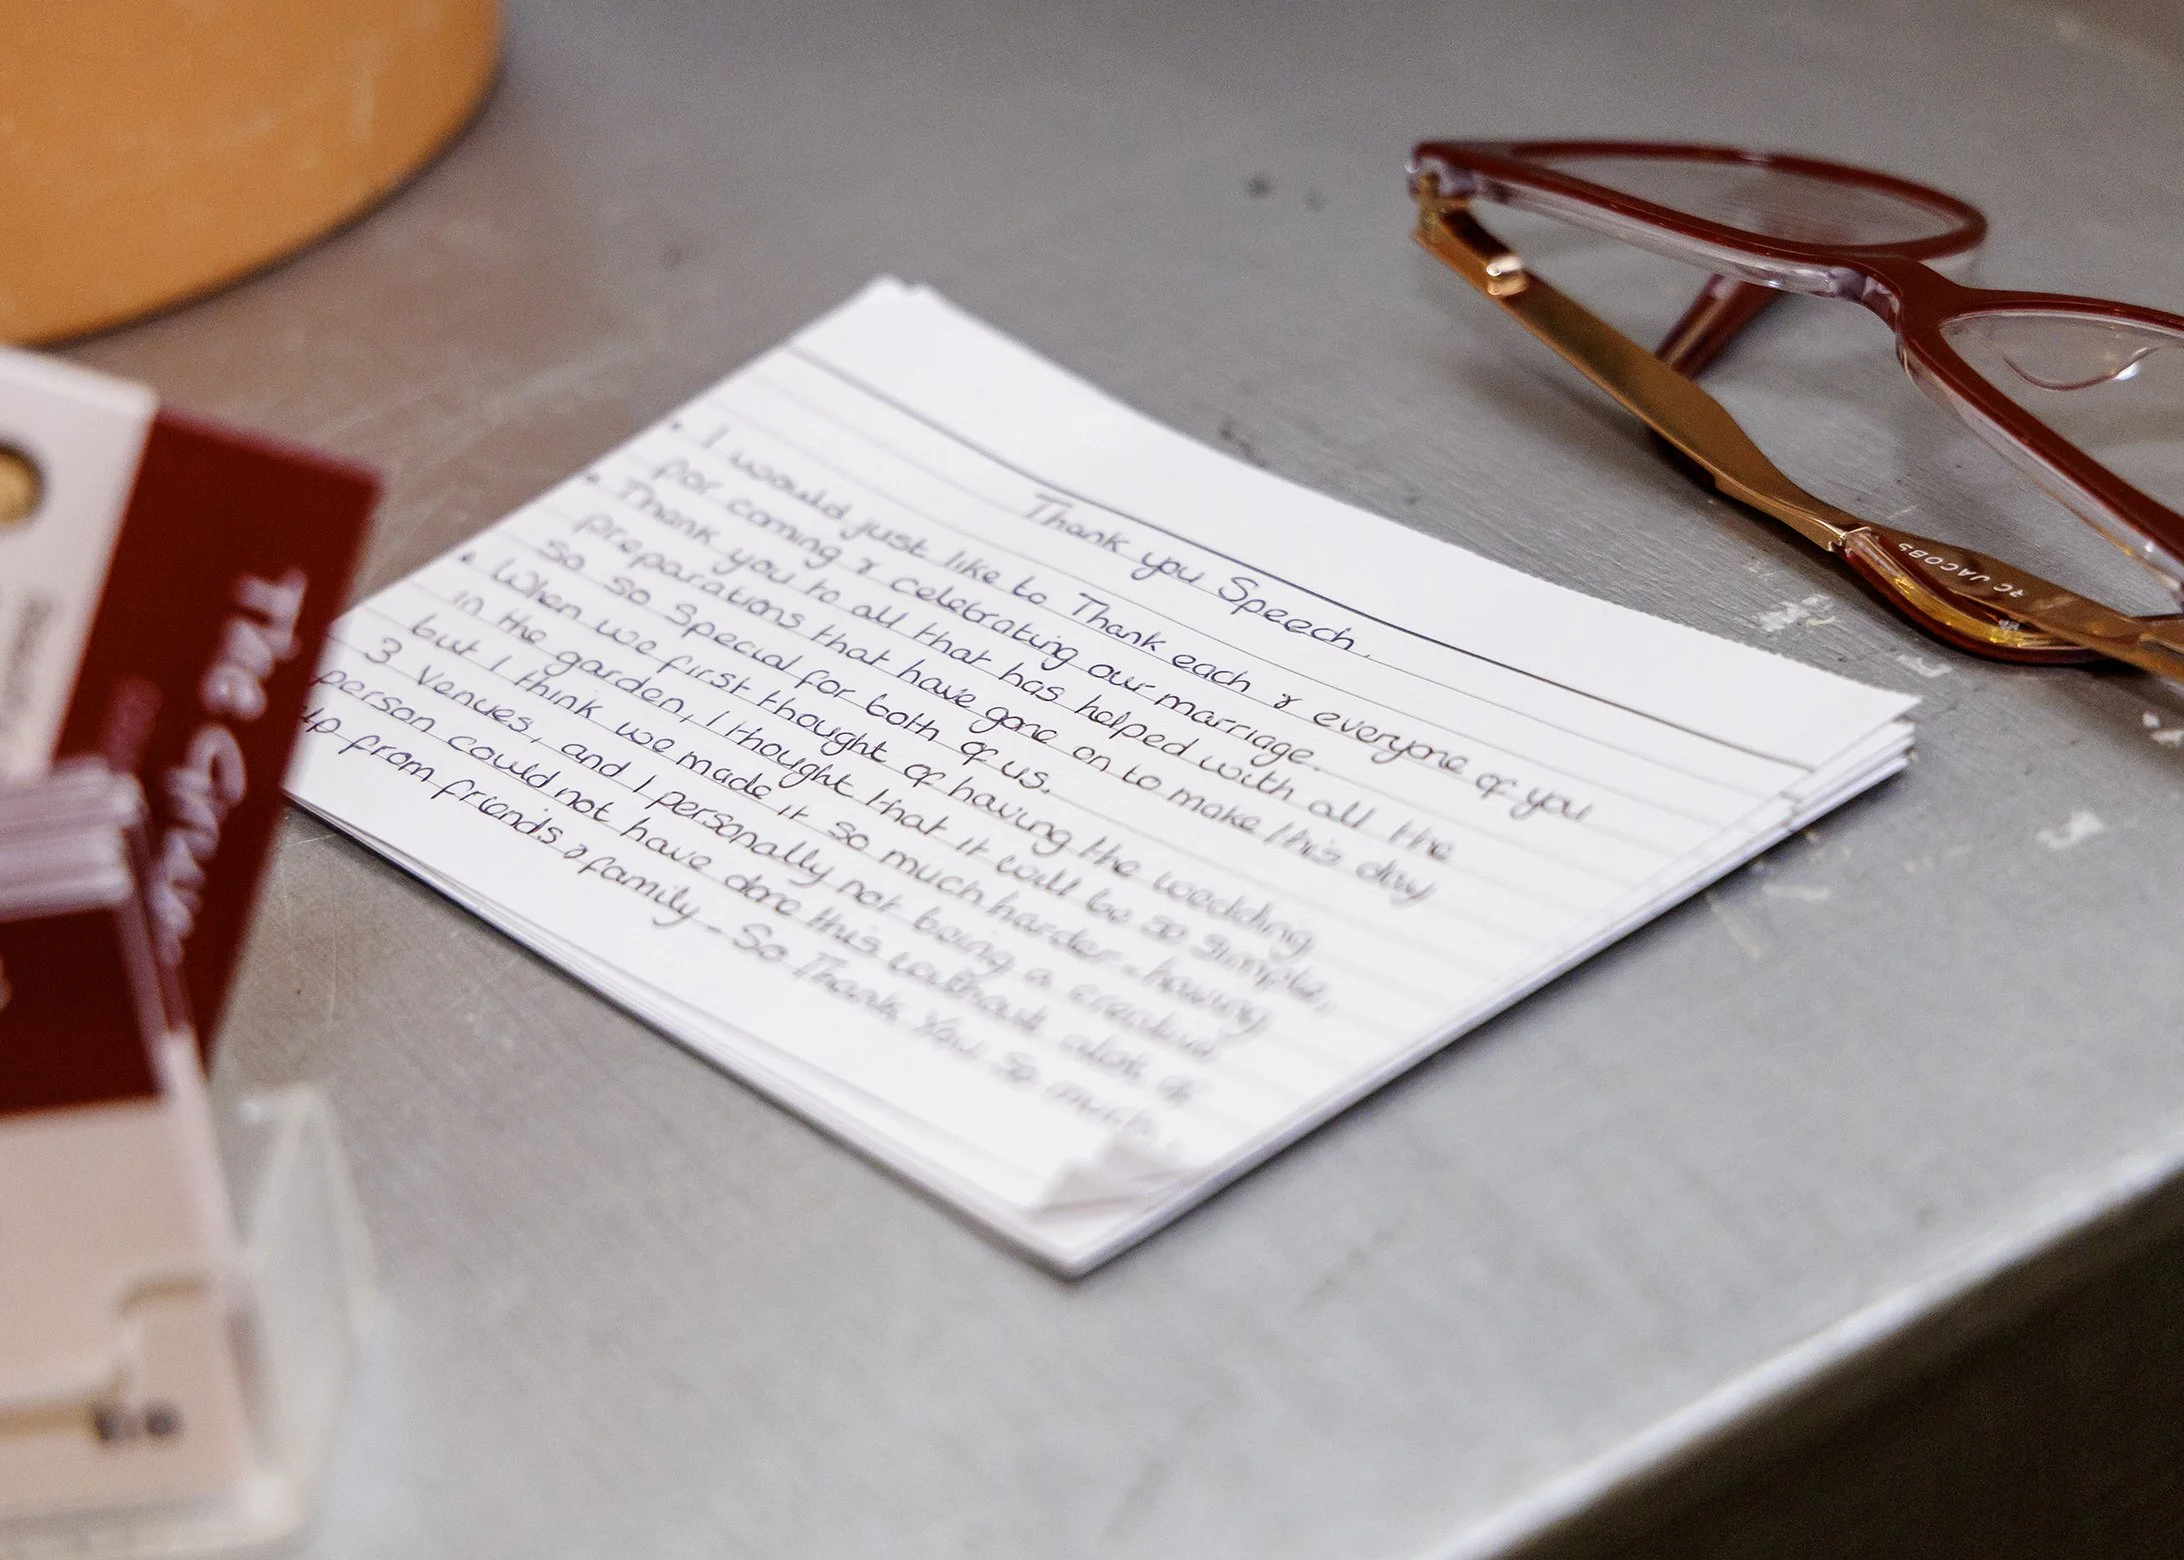 Thank you Speech.
• I would just like to Thank each & everyone of you
for coming & celebrating our marriage.
• Thank you to all that has helped with all the
preparations that have gone on to make this day
so so special for both of us.
• When we first thought of having the wedding
in the garden, I thought that it will be so simple,
but I think we made it so much harder - having
3 Venues, and I personally not being a creative
person could not have done this without alot of
up from friends & family - So Thank You So much
RC JACOBS
THE